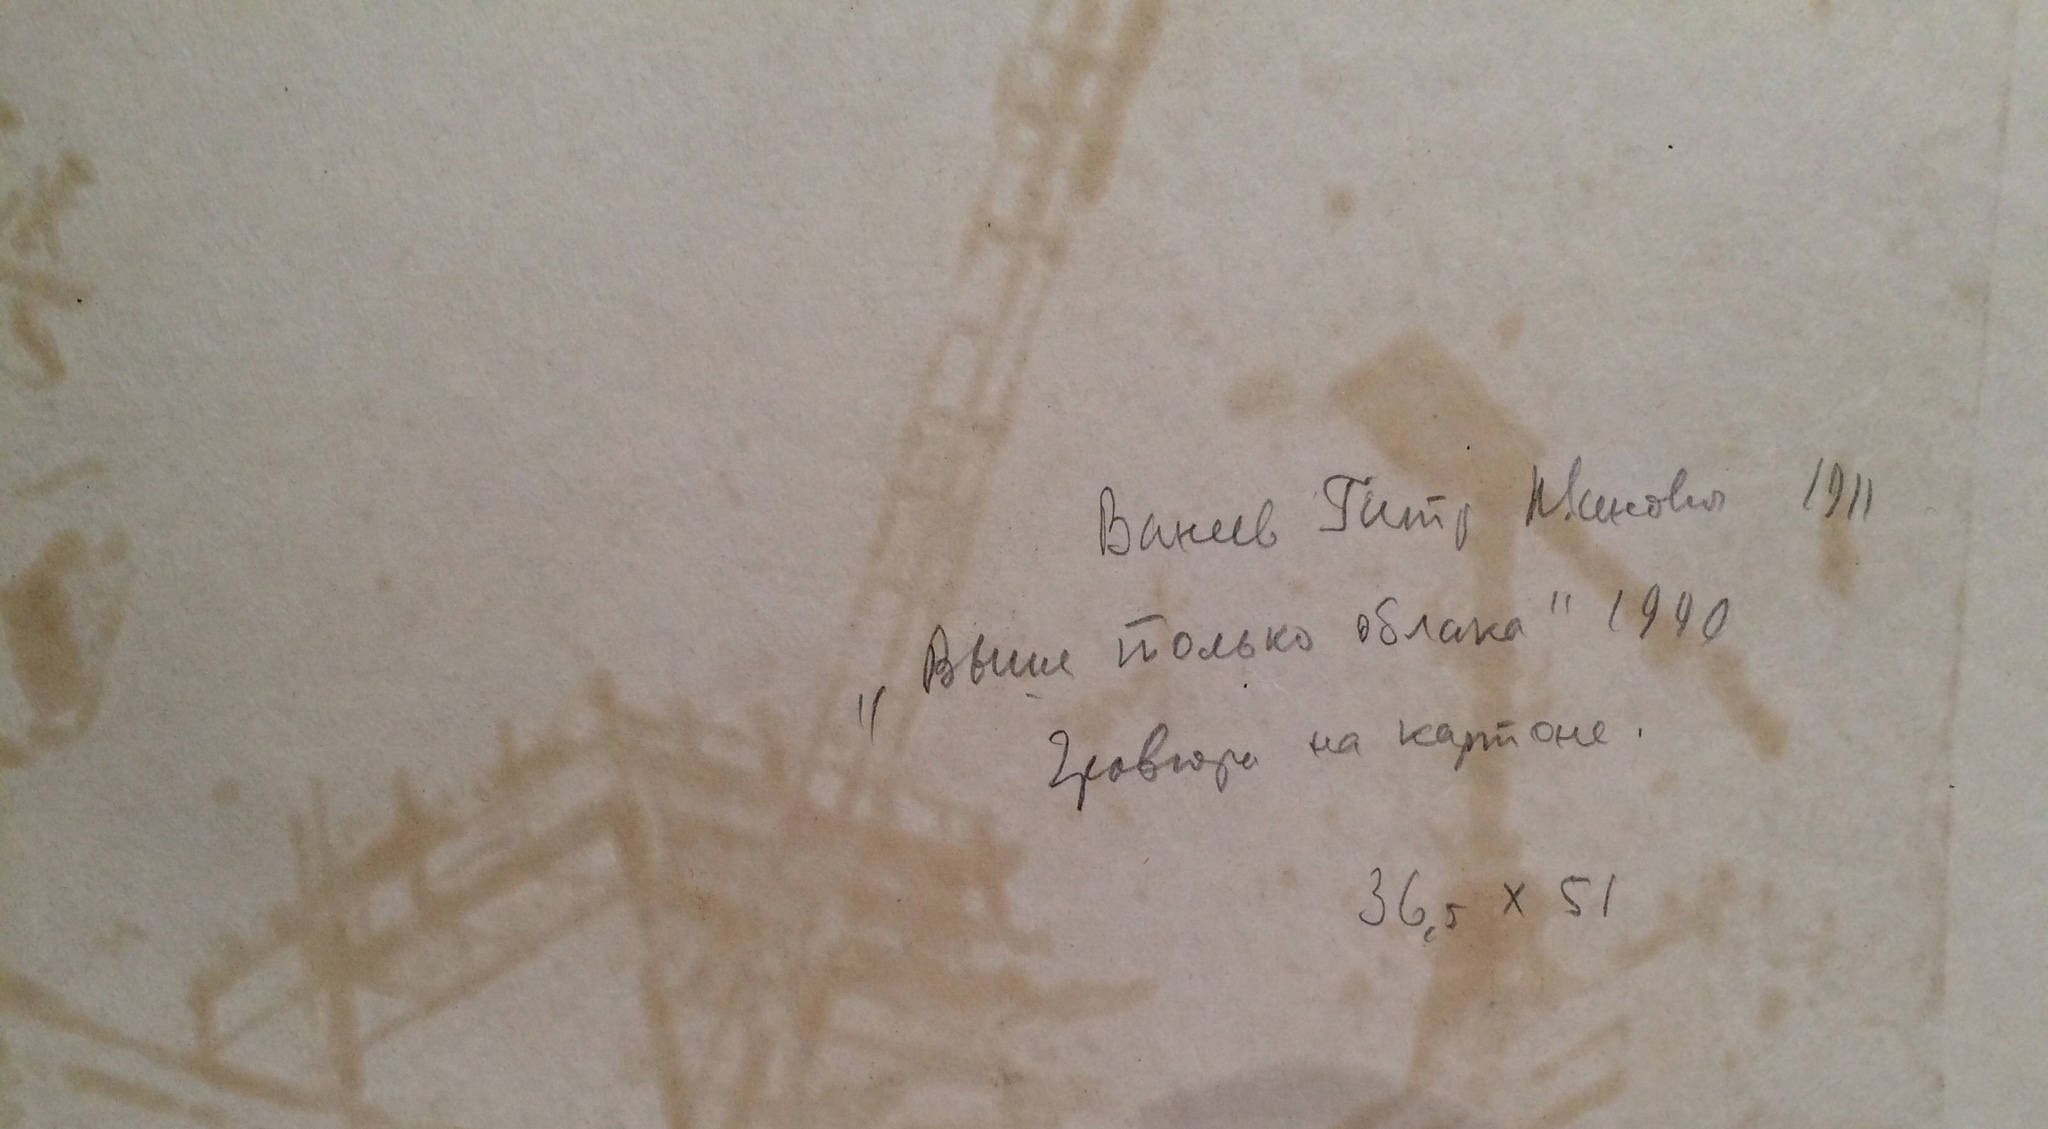 Ванеев Петр Иванович 1911
„Выше только облака" 1990
Гравюра на картоне.
36,5 x 51